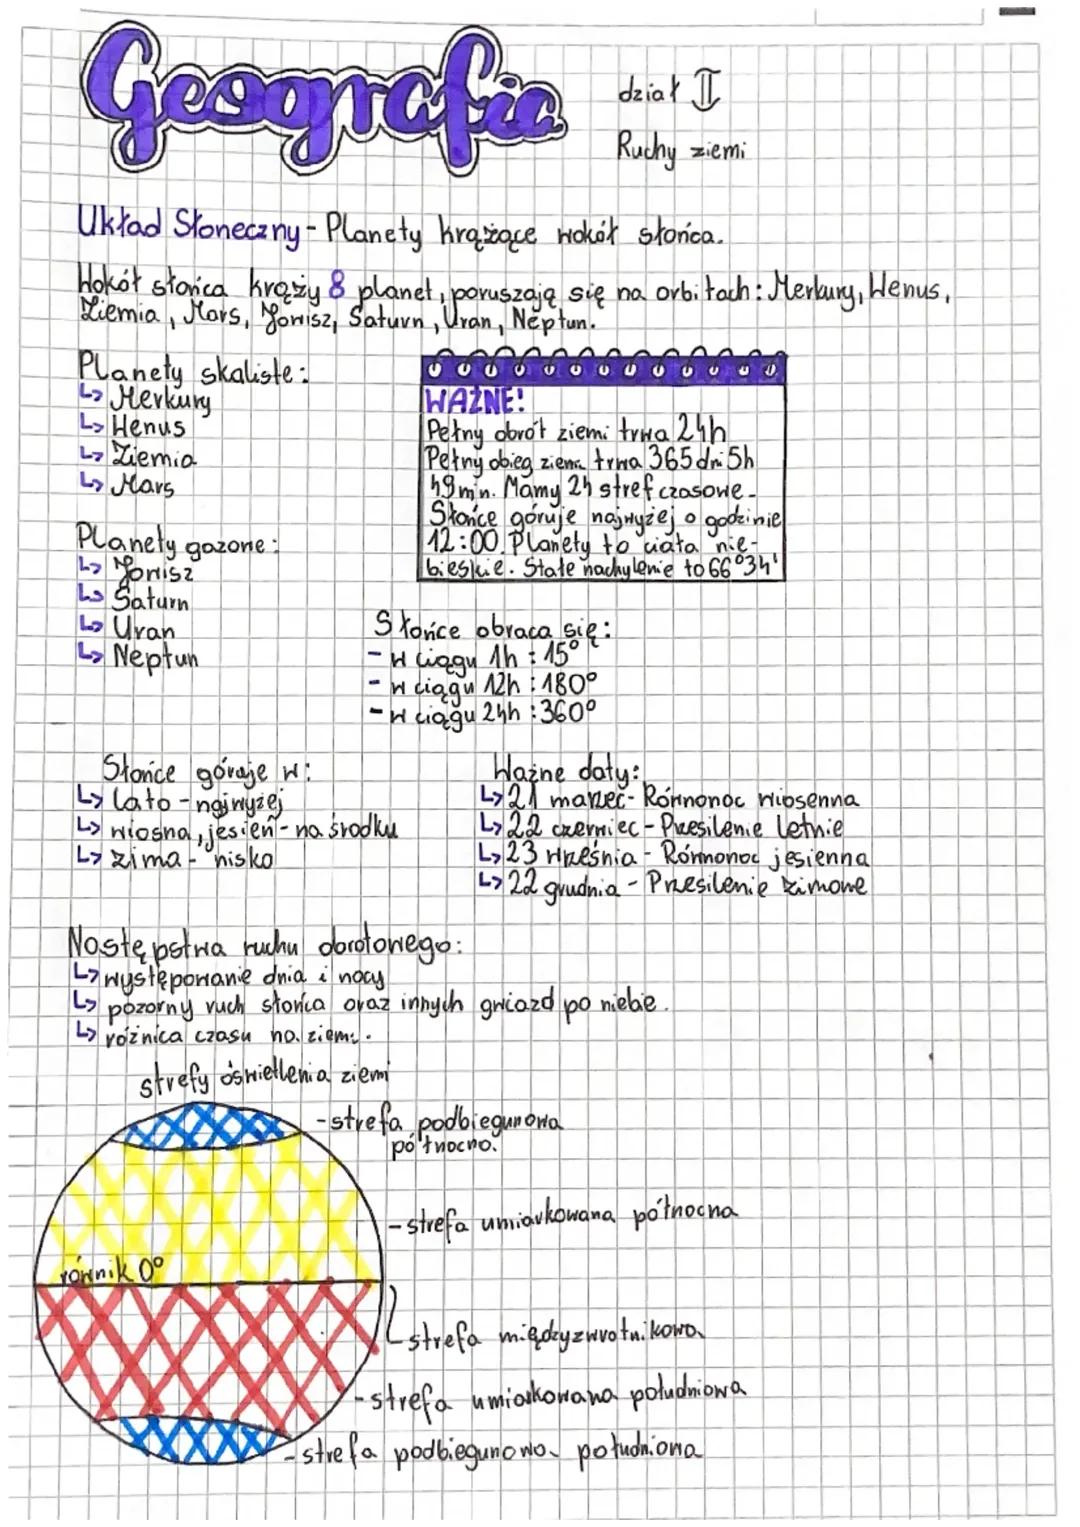 Geografia
dział II
Ruchy ziemi
Układ Słoneczny - Planety krążące wokół słońca.
Wokół słońca krąży 8 planet, poruszają się na orbitach: Merkury, Wenus,
Ziemia, Mars, Jowisz, Saturn, Uran, Neptun.
Planety skaliste:
↳ Merkury
↳ Wenus
↳ Ziemia
↳ Mars
Planety gazowe:
↳ Jowisz
↳ Saturn
↳ Uran
↳ Neptun
WAŻNE!
Pełny obrót ziemi trwa 24h
Pełny obieg ziemi trwa 365 dni 5h
49 min. Mamy 24 stref czasowe.
Słońce góruje najwyżej o godzinie
12:00. Planety to ciała nie-
bieskie. Stałe nachylenie to 66°34'
Słońce obraca się:
- w ciągu 1h : 15°
- w ciągu 12h : 180°
- w ciągu 24h : 360°
Słońce góruje w:
↳ lato - najwyżej
↳ wiosna, jesień - na środku
↳ zima - nisko
Ważne daty:
↳ 21 marzec - Równonoc wiosenna
↳ 22 czerwiec - Przesilenie letnie
↳ 23 września - Równonoc jesienna
↳ 22 grudnia - Przesilenie zimowe
Następstwa ruchu obrotowego:
↳ występowanie dnia i nocy
↳ pozorny ruch słońca oraz innych gwiazd po niebie.
↳ różnica czasu na ziemi.
strefy oświetlenia ziemi
- strefa podbiegunowa
północna.
- strefa umiarkowana północna
równik 0°
strefa międzyzwrotnikowa
- strefa umiarkowana południowa
- strefa podbiegunowa południowa